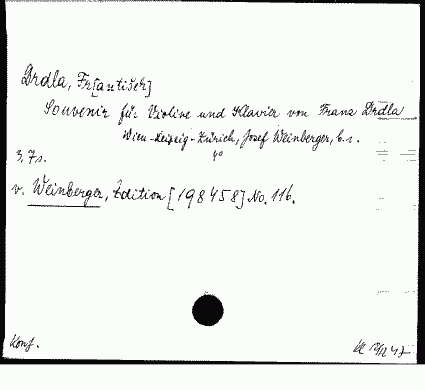 Drdla, Fr[antišek]
Souvenir für Violine und Klavier von Franz Drdla
Wien-Leipzig-Zürich, Josef Weinberger, c. r.
4°
3, 7 s.
v. Weinberger, Edition [198458] No. 116.
Konf.